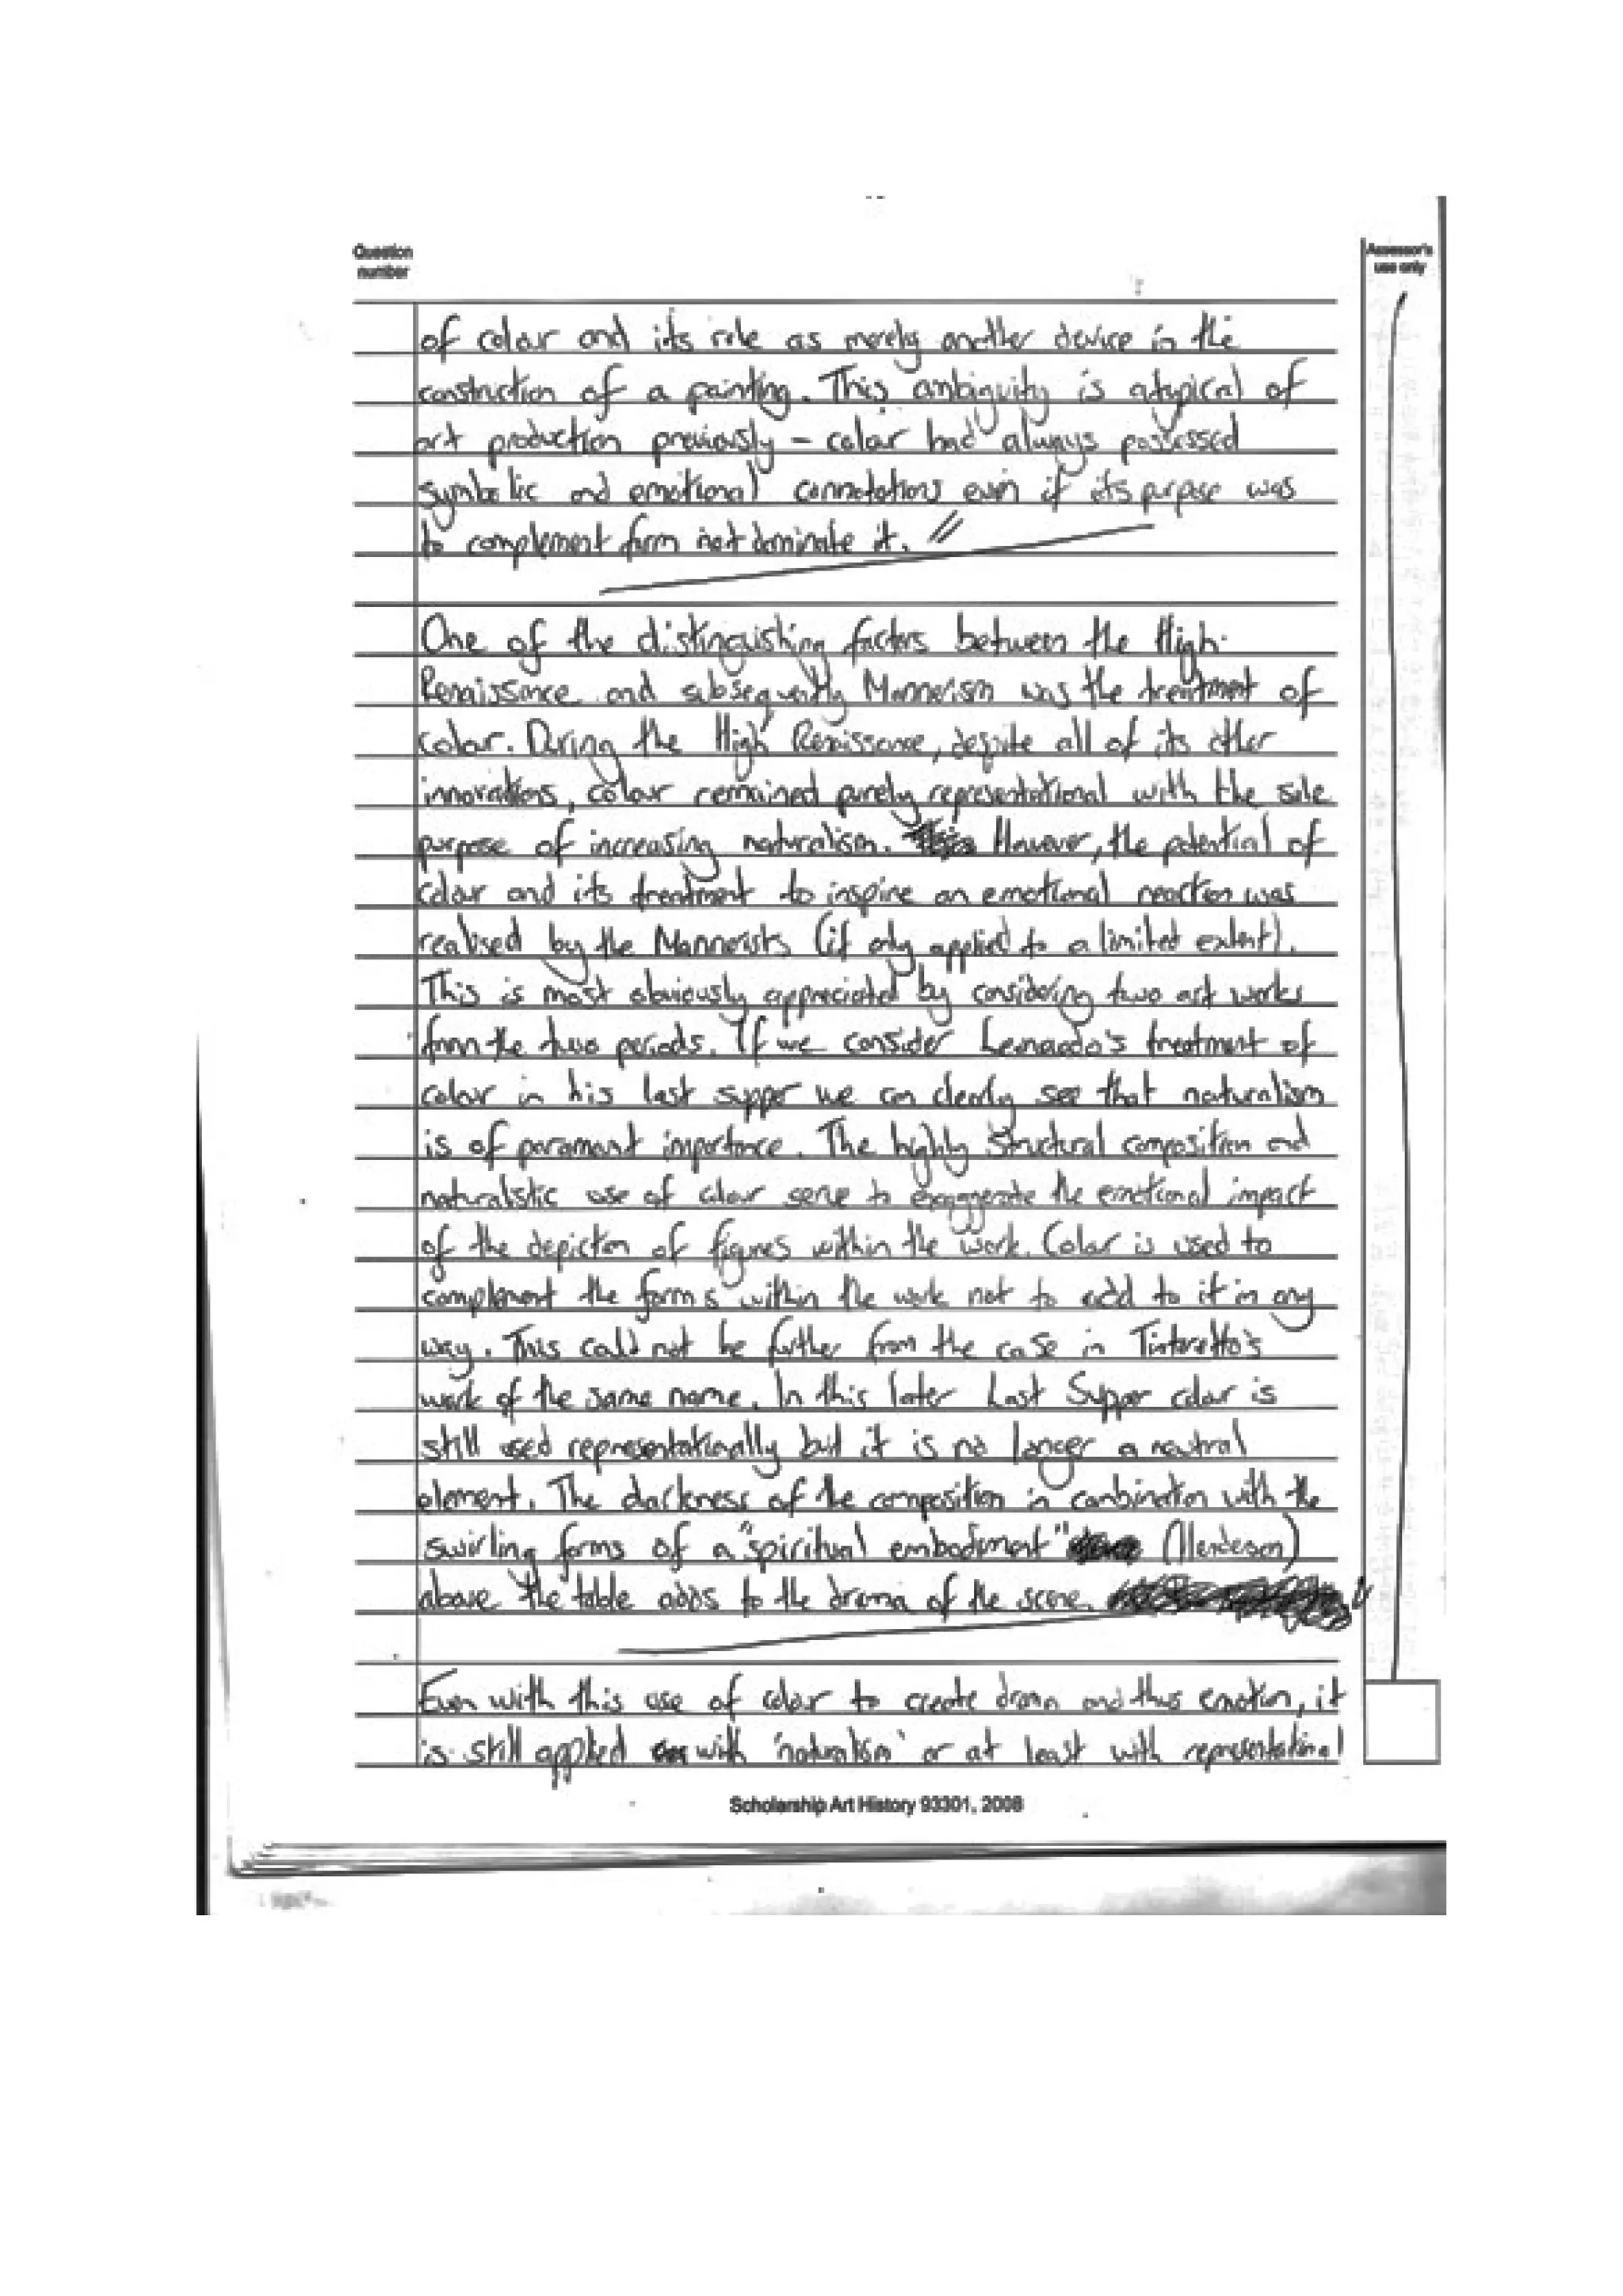 Question
number
Assessor's
use only
of colour and its role as merely another device in the
construction of a painting. This ambiguity is atypical of
art production previously – colour had always possessed
symbolic and emotional connotations even if its purpose was
to complement form not dominate it. //
One of the distinguishing factors between the High
Renaissance and subsequently Mannerism was the treatment of
colour. During the High Renaissance, despite all of its other
innovations, colour remained purely representational with the sole
purpose of increasing naturalism. However, the potential of
colour and its treatment to inspire an emotional reaction was
realised by the Mannerists (if only applied to a limited extent).
This is most obviously appreciated by considering two art works
from the two periods. If we consider Leonardo's treatment of
colour in his last supper we can clearly see that naturalism
is of paramount importance. The highly structural composition and
naturalistic use of colour serve to exaggerate the emotional impact
of the depiction of figures within the work. Colour is used to
complement the forms within the work not to add to it in any
way. This could not be further from the case in Tintoretto's
work of the same name. In this later Last Supper colour is
still used representationally but it is no longer a neutral
element. The darkness of the composition in combination with the
swirling forms of a "spiritual embodiment" (Henderson)
above the table adds to the drama of the scene.
Even with this use of colour to create drama and thus emotion, it
is still applied with 'naturalism' or at least with representational
Scholarship Art History 93301, 2008